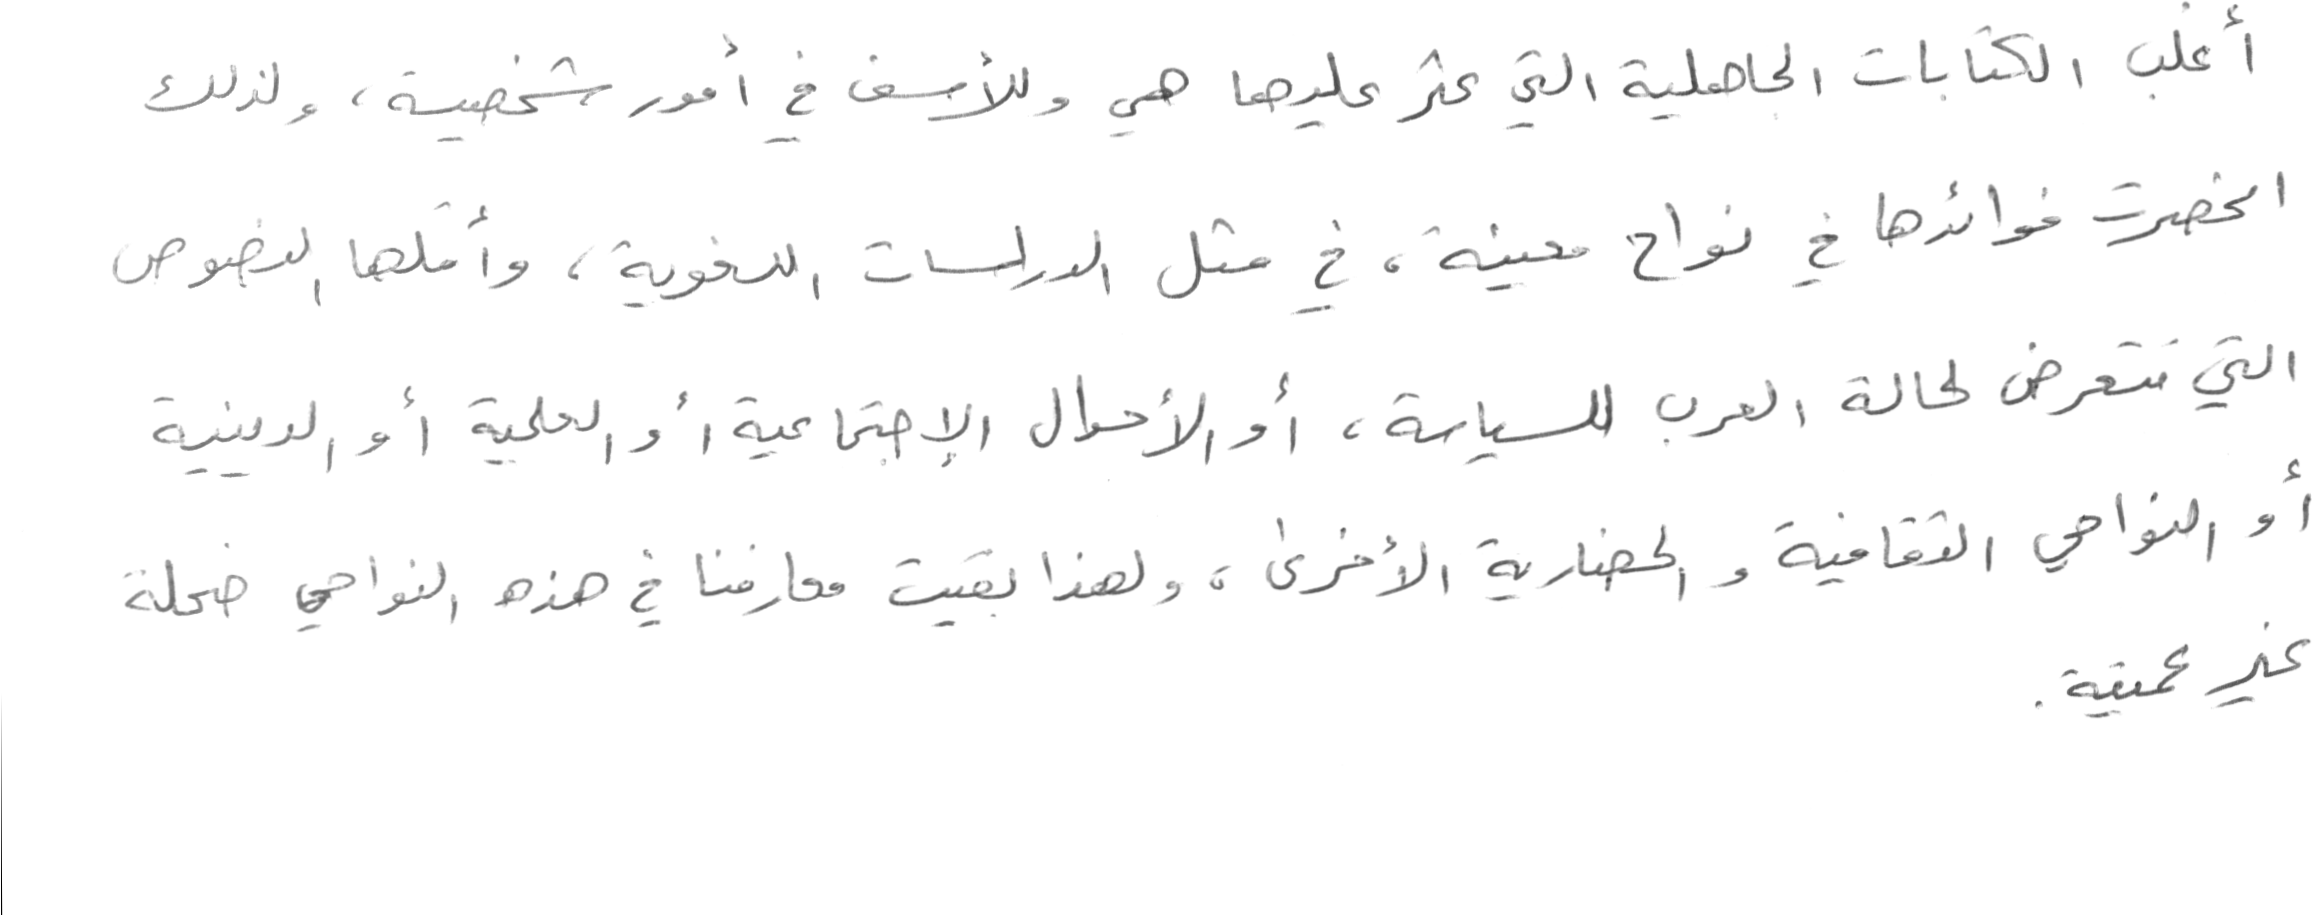 أغلب الكتابات الجاهلية التي عثر عليها هي وللأسف في أمور شخصية، ولذلك
انحصرت فوائدها في نواح معينة، في مثل الدراسات اللغوية، وأقلها النصوص
التي تتعرض لحالة العرب السياسة، أو الأحوال الإجتماعية أو العلمية أو الدينية
أو النواحي الثقافية و الحضارية الأخرى، ولهذا بقيت معارفنا في هذه النواحي ضحلة
غير عميقة.